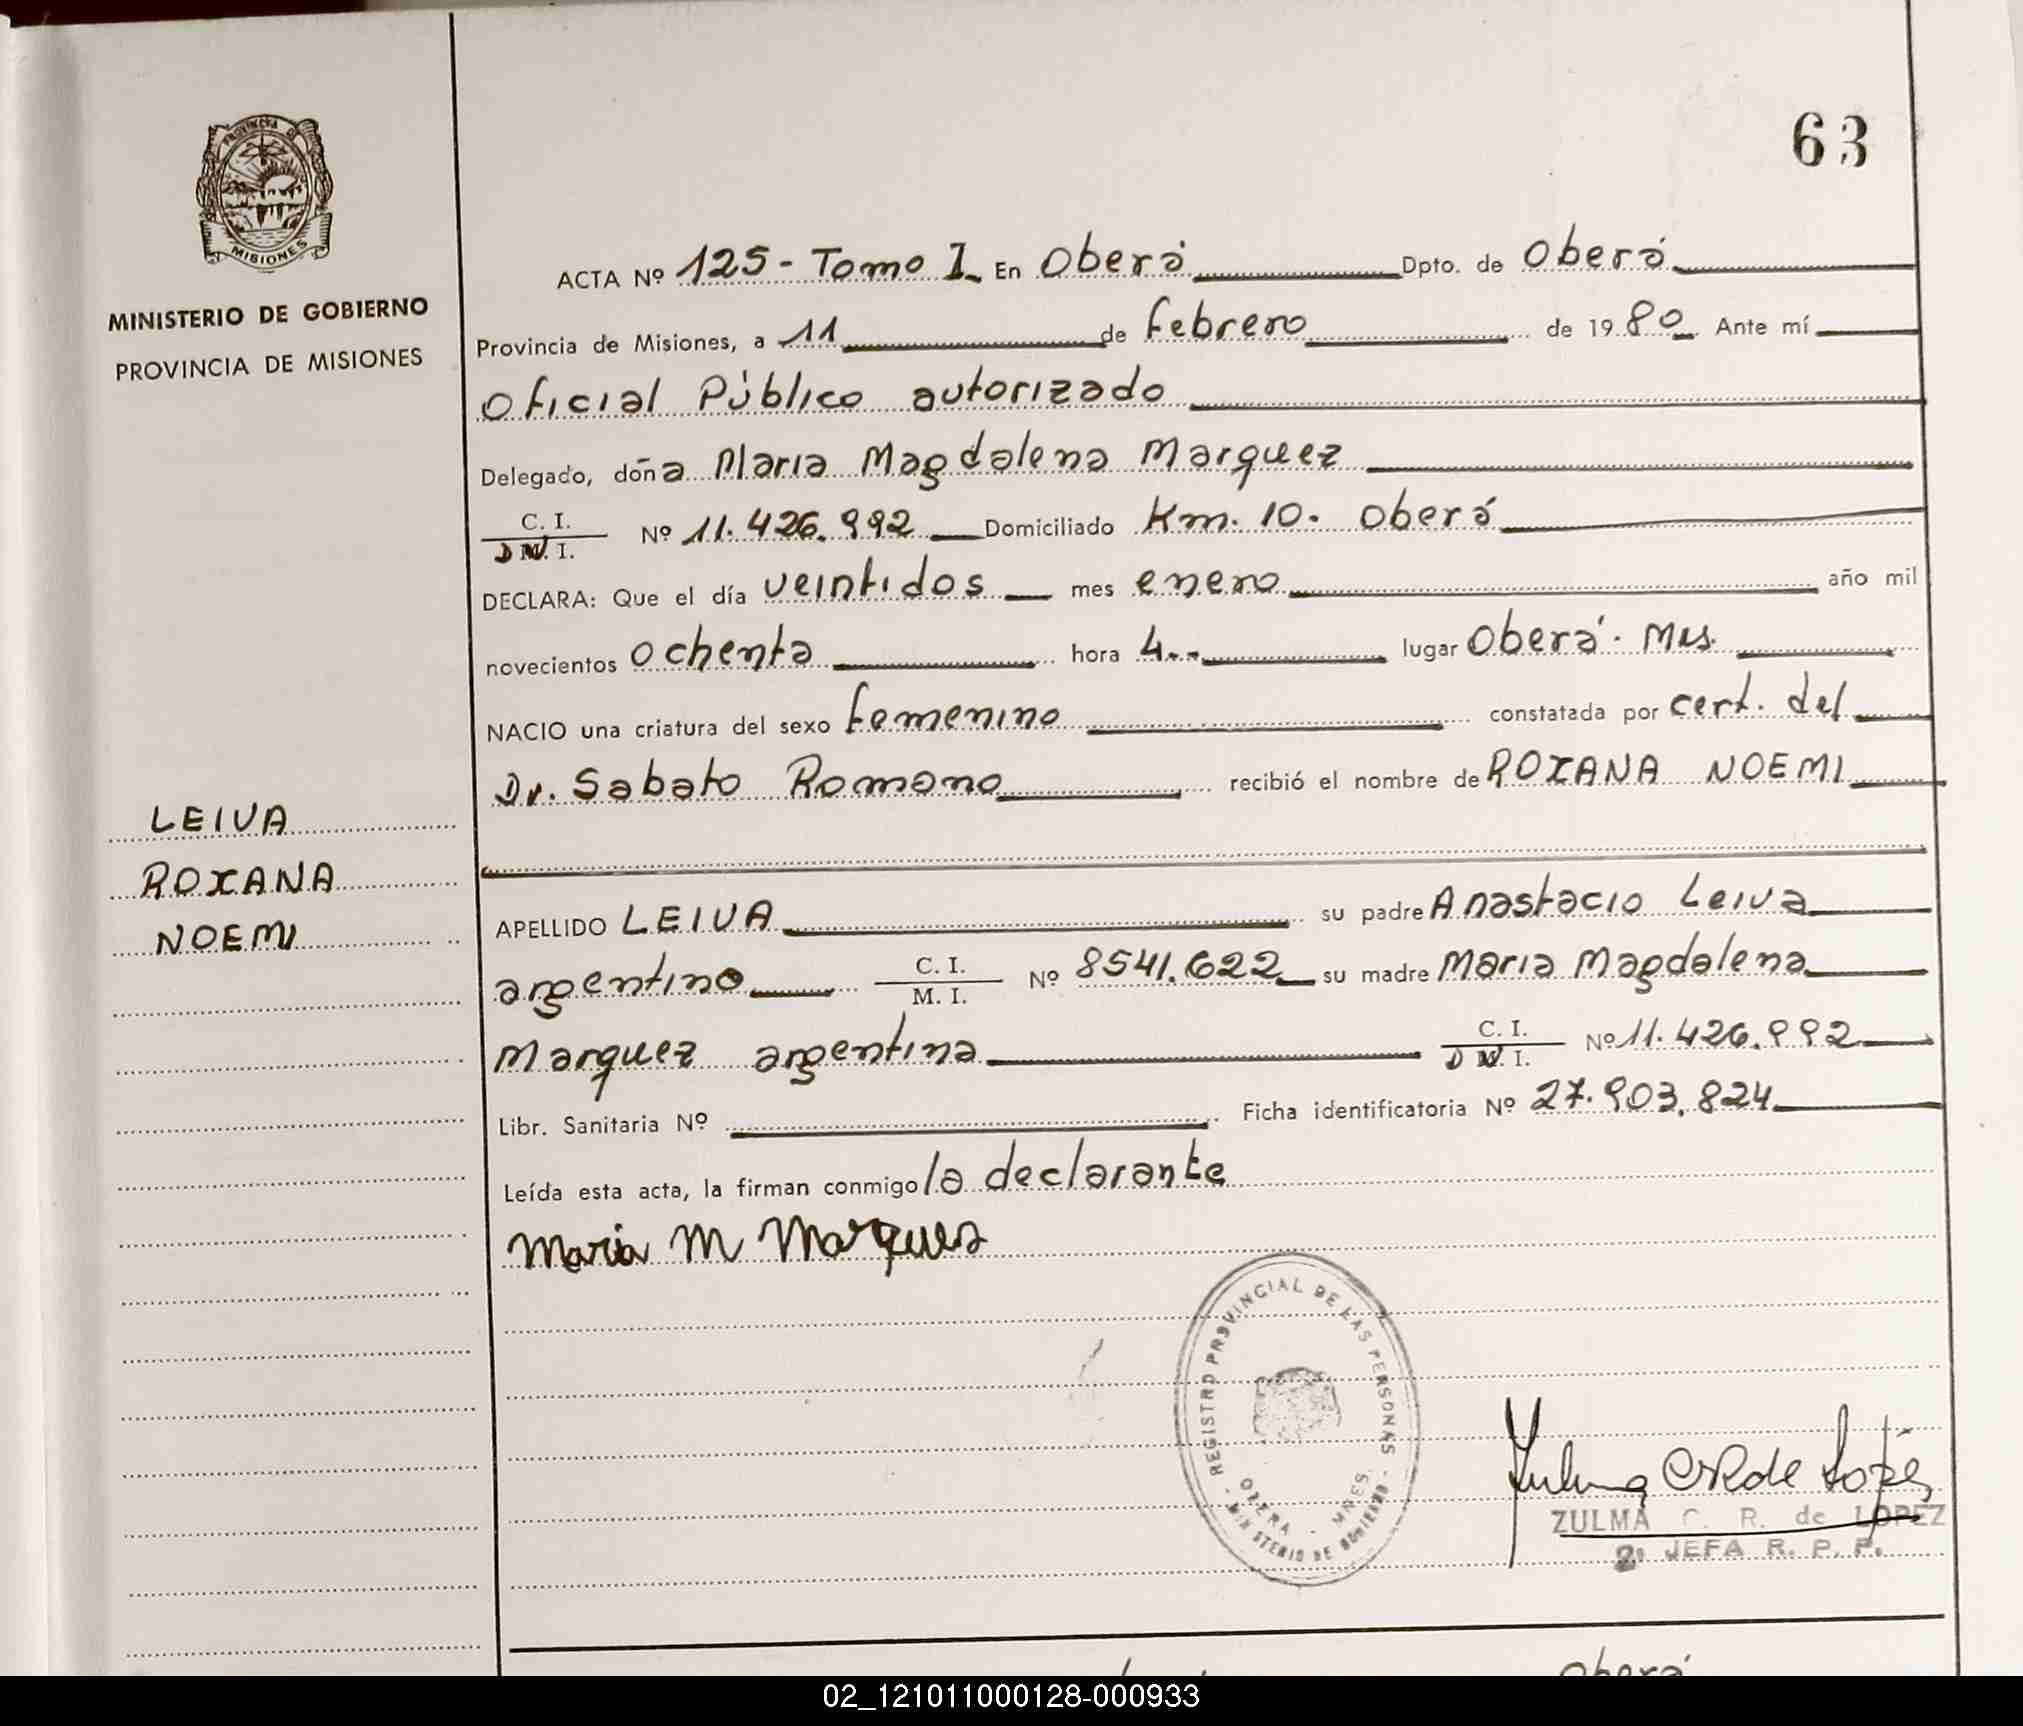 63
PROVINCIA DE
MISIONES
MINISTERIO DE GOBIERNO
PROVINCIA DE MISIONES
LEIVA
ROXANA
NOEMI
ACTA Nº 125 - Tomo I En Oberá Dpto. de Oberá
Provincia de Misiones, a 11 de febrero de 1980 Ante mí
Oficial Público autorizado
Delegado, doña Maria Magdalena Marquez
C. I.
D N. I. Nº 11.426.992 Domiciliado Km. 10. Oberá
DECLARA: Que el día veintidos mes enero año mil
novecientos ochenta hora 4.- lugar Oberá. Mns.
NACIO una criatura del sexo femenino constatada por cert. del
Dr. Sabato Romano recibió el nombre de ROXANA NOEMI
APELLIDO LEIVA su padre Anastacio Leiva
argentino C. I.
M. I. Nº 8541.622 su madre Maria Magdalena
Marquez argentina C. I.
D N. I. Nº 11.426.992
Libr. Sanitaria Nº Ficha identificatoria Nº 27.903.824
Leída esta acta, la firman conmigo la declarante
Maria M Marques
REGISTRO PROVINCIAL DE LAS PERSONAS
OBERA - MNES.
- MINISTERIO DE GOBIERNO -
Zulma CR de López
ZULMA C. R. de LOPEZ
2ª JEFA R. P. P.
Oberá
02_121011000128-000933